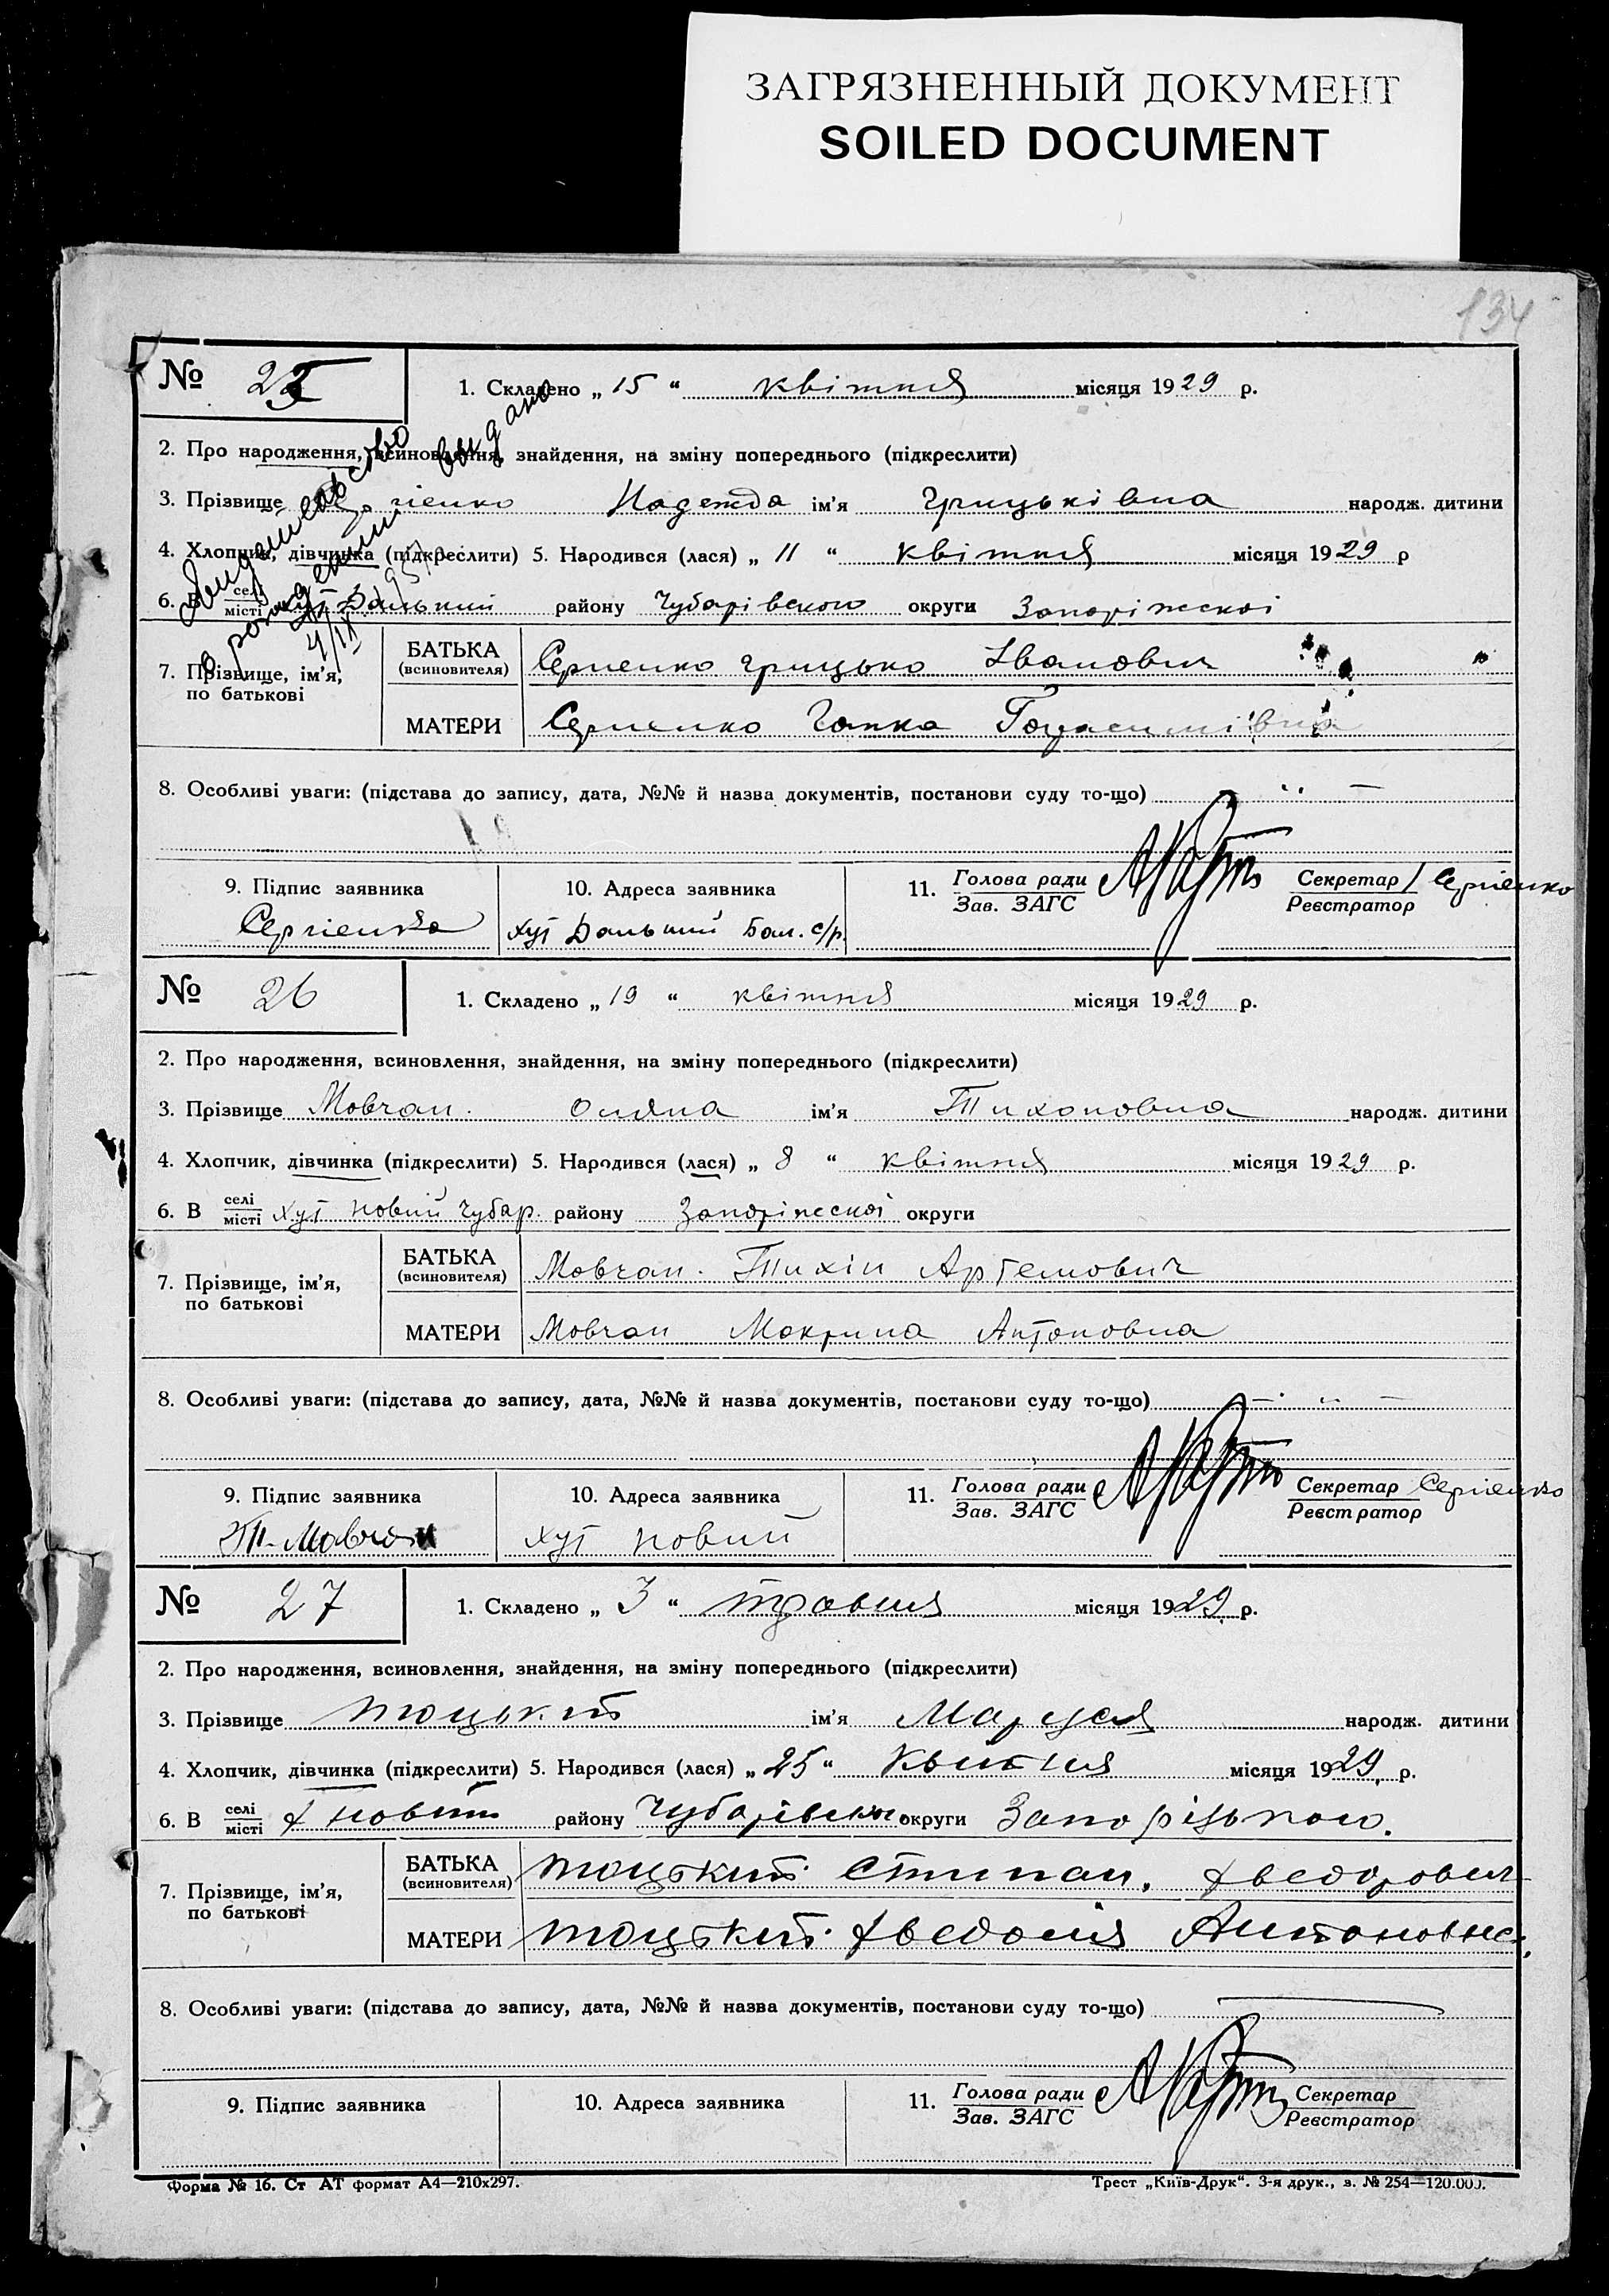 ЗАГРЯЗНЕННЫЙ ДОКУМЕНТ
SOILED DOCUMENT
134
№ 25
1. Складено „ 15 “ квітня місяця 1929 р.
Свидетельство о рождении выдано
4/IX
2. Про народження, всиновлення, знайдення, на зміну попереднього (підкреслити)
3. Прізвище Надежда ім’я Грицьківна народж. дитини
4. Хлопчик, дівчинка (підкреслити) 5. Народився (лася) „ 11 “ квітня місяця 1929 р
6. В селі місті хут Дальний району Чубарівського округи Запоріжскої
7. Прізвище, ім’я, по батькові
БАТЬКА (всиновителя) Сергиенко Грицько Іванович
МАТЕРИ Сергиенко Гапка Гарасимівна
8. Особливі уваги: (підстава до запису, дата, №№ й назва документів, постанови суду то-що) — “ —
9. Підпис заявника
Сергієнко
10. Адреса заявника
хут Дальний Бал. с/р.
11. Голова ради Зав. ЗАГС
Секретар Реєстратор Сергієнко
№ 26
1. Складено „ 19 “ квітня місяця 1929 р.
2. Про народження, всиновлення, знайдення, на зміну попереднього (підкреслити)
3. Прізвище Мовчан. Оляна ім’я Тихоновна народж. дитини
4. Хлопчик, дівчинка (підкреслити) 5. Народився (лася) „ 8 “ квітня місяця 1929 р.
6. В селі місті хут Новий Чубар. району Запоріжскої округи
7. Прізвище, ім’я, по батькові
БАТЬКА (всиновителя) Мовчан. Тихін Артемович
МАТЕРИ Мовчан Мокрина Антоновна
8. Особливі уваги: (підстава до запису, дата, №№ й назва документів, постанови суду то-що) — “ —
9. Підпис заявника
Т. Мовчан
10. Адреса заявника
хут Новий
11. Голова ради Зав. ЗАГС
Секретар Реєстратор Сергієнко
№ 27
1. Складено „ 3 “ травня місяця 1929 р.
2. Про народження, всиновлення, знайдення, на зміну попереднього (підкреслити)
3. Прізвище Тоцький ім’я Маруся народж. дитини
4. Хлопчик, дівчинка (підкреслити) 5. Народився (лася) „ 25 “ Квитня місяця 1929 р.
6. В селі місті х Новий району Чубарівського округи Запорізького.
7. Прізвище, ім’я, по батькові
БАТЬКА (всиновителя) Тоцький Стипан. Хведорович
МАТЕРИ Тоцький Хведосія Антоновна.
8. Особливі уваги: (підстава до запису, дата, №№ й назва документів, постанови суду то-що) —
9. Підпис заявника
10. Адреса заявника
11. Голова ради Зав. ЗАГС
Секретар Реєстратор
Форма № 16. Ст АТ формат А4—210х297.
Трест „Київ-Друк“. 3-я друк., з. № 254—120.000.